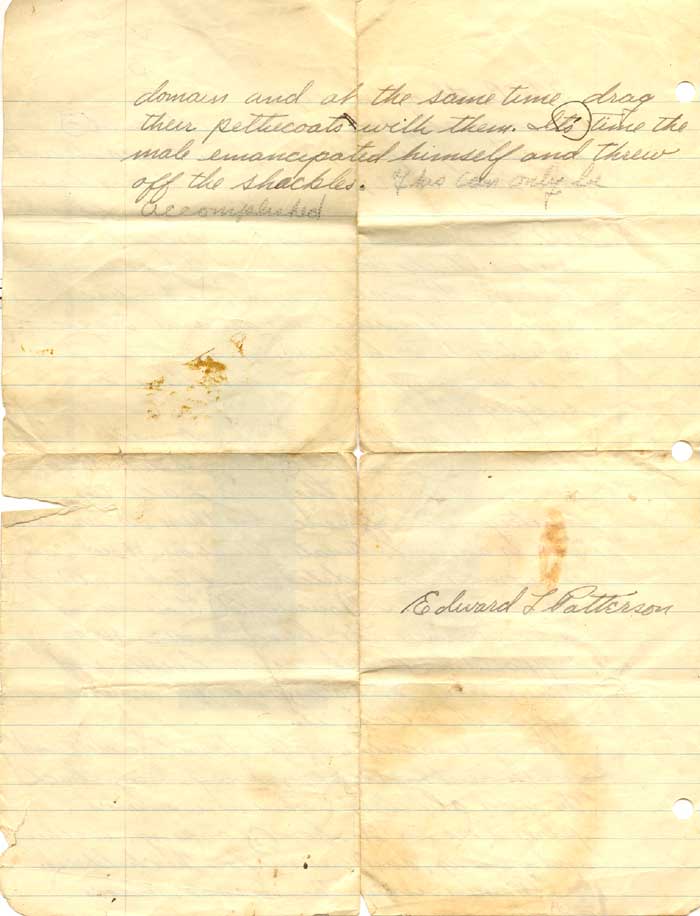 domain and at the same time drag
their petticoats with them. Its time the
male emancipated himself and threw
off the shackles. This can only be
accomplished
Edward L Patterson